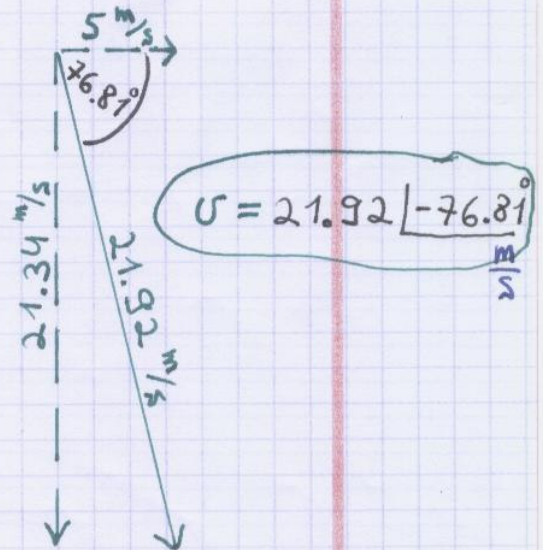 5 m/s
76.81°
21.34 m/s
21.92 m/s
v = 21.92 |-76.81° m/s